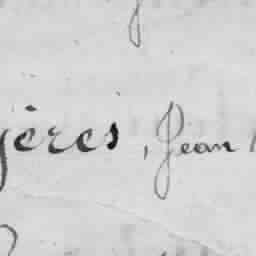 gères, Jean